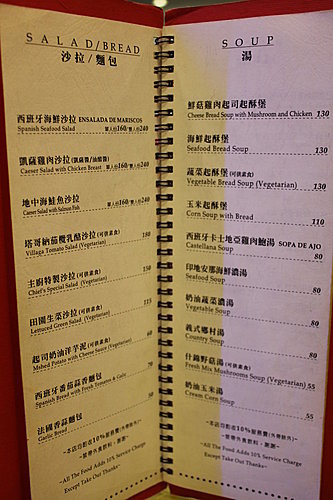 SALAD/BREAD
沙拉/麵包
西班牙海鮮沙拉 ENSALADA DE MARISCOS
Spanish Seafood Salad 單人份160/雙人份240
凱薩雞肉沙拉(凱薩醬/油醋醬)
Caeser Salad with Chicken Breast 單人份160/雙人份240
地中海鮭魚沙拉
Caeser Salad with Salmon Fish 單人份160/雙人份240
塔哥納茄機乳酪沙拉(可供素食) 180
Villaga Tomato Salad (Vegetarian)
主廚特製沙拉(可供素食) 150
Chief's Special Salad (Vegetarian)
田園生菜沙拉(可供素食) 115
Lettuced Green Salad (Vegetarian)
起司奶油洋芋泥(可供素食) 60
Mshed Potato with Cheese Sauce (Vegetarian)
西班牙番茄蒜香麵包 70
Spanish Bread with Fresh Tomatoe & Galic
法國香蒜麵包 50
Garlic Bread
~本店均酌收10%服務費(外帶除外)~
~禁帶外食飲料，謝謝~
~All The Food Adds 10% Service Charge
Except Take Out Thanks~
SOUP
湯
鮮菇雞肉起司起酥堡
Cheese Bread Soup with Mushroom and Chicken 130
海鮮起酥堡
Seafood Bread Soup 130
蔬菜起酥堡(可供素食)
Vegetable Bread Soup (Vegetarian) 130
玉米起酥堡
Corn Soup with Bread 110
西班牙卡士地亞雞肉鮑湯 SOPA DE AJO
Castellana Soup 80
印地安那海鮮濃湯
Seafood Soup 80
奶油蔬菜濃湯
Vegetable Soup 80
義式鄉村湯
Country Soup 80
什錦野菇湯(可供素食)
Fresh Mix Mushrooms Soup (Vegetarian) 55
奶油玉米湯
Cream Corn Soup 55
~本店均酌收10%服務費(外帶除外)~
~禁帶外食飲料，謝謝~
~All The Food Adds 10% Service Charge
Except Take Out Thanks~